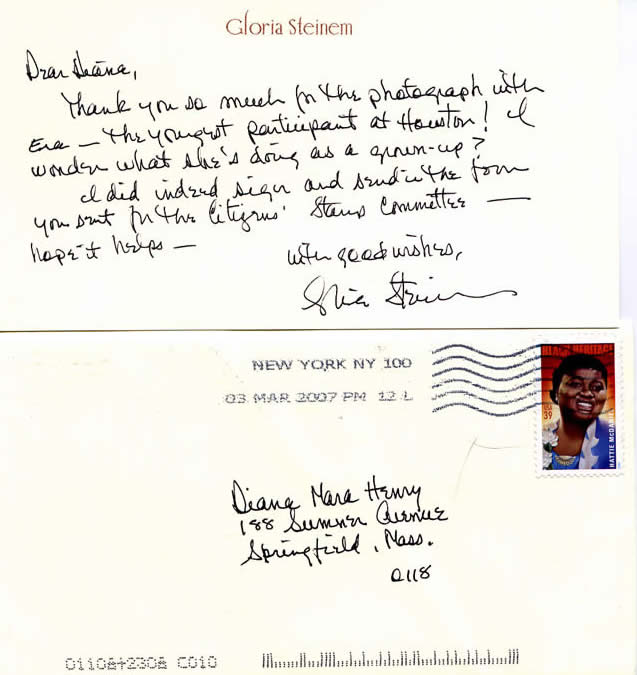 Gloria Steinem
Dear Diana,
Thank you so much for the photograph with
Era — the youngest participant at Houston! I
wonder what she's doing as a grown-up?
I did indeed sign and send in the form
you sent for the Citizens' Stamp Committee —
hope it helps —
With good wishes,
Gloria Steinem
NEW YORK NY 100
03 MAR 2007 PM 12 L
BLACK HERITAGE
USA
39
HATTIE McDANIEL
Diana Mara Henry
188 Sumner Avenue
Springfield, Mass.
0118
0110842308 C010